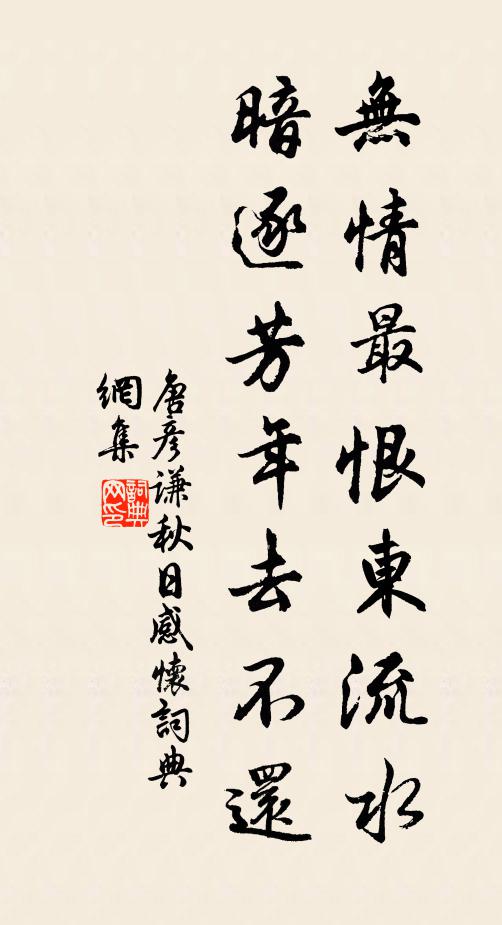 無情最恨東流水
暗逐芳年去不還
唐彥謙秋日感懷詞典
網集
詞典
网印